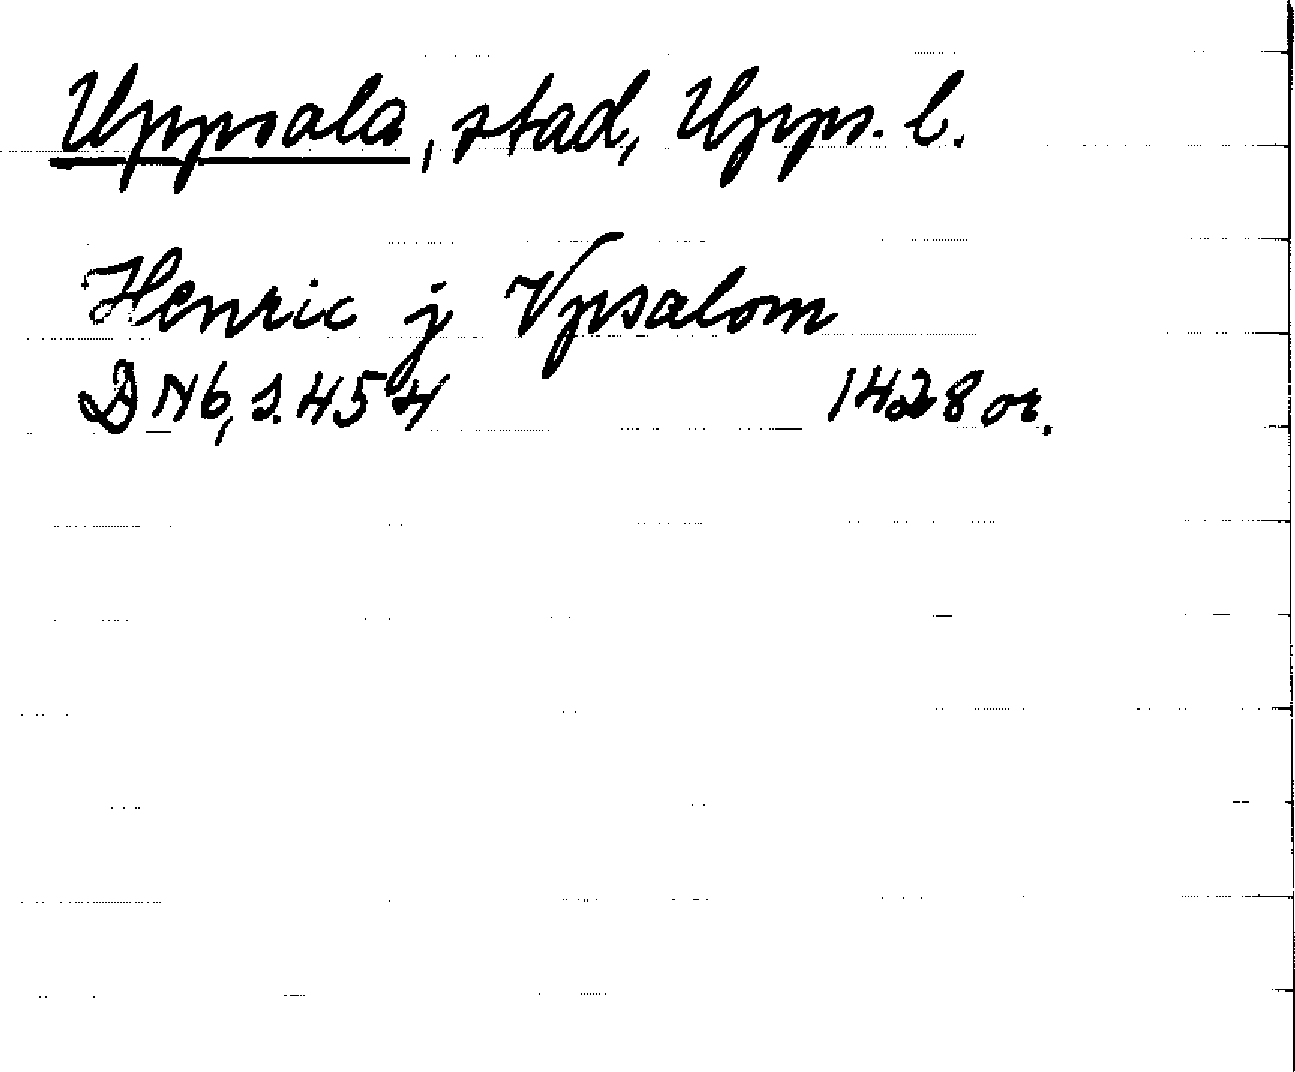 Uppsala, stad, Upps. l.
Henric j Vpsalom
DN6, s. 454 1428 or.